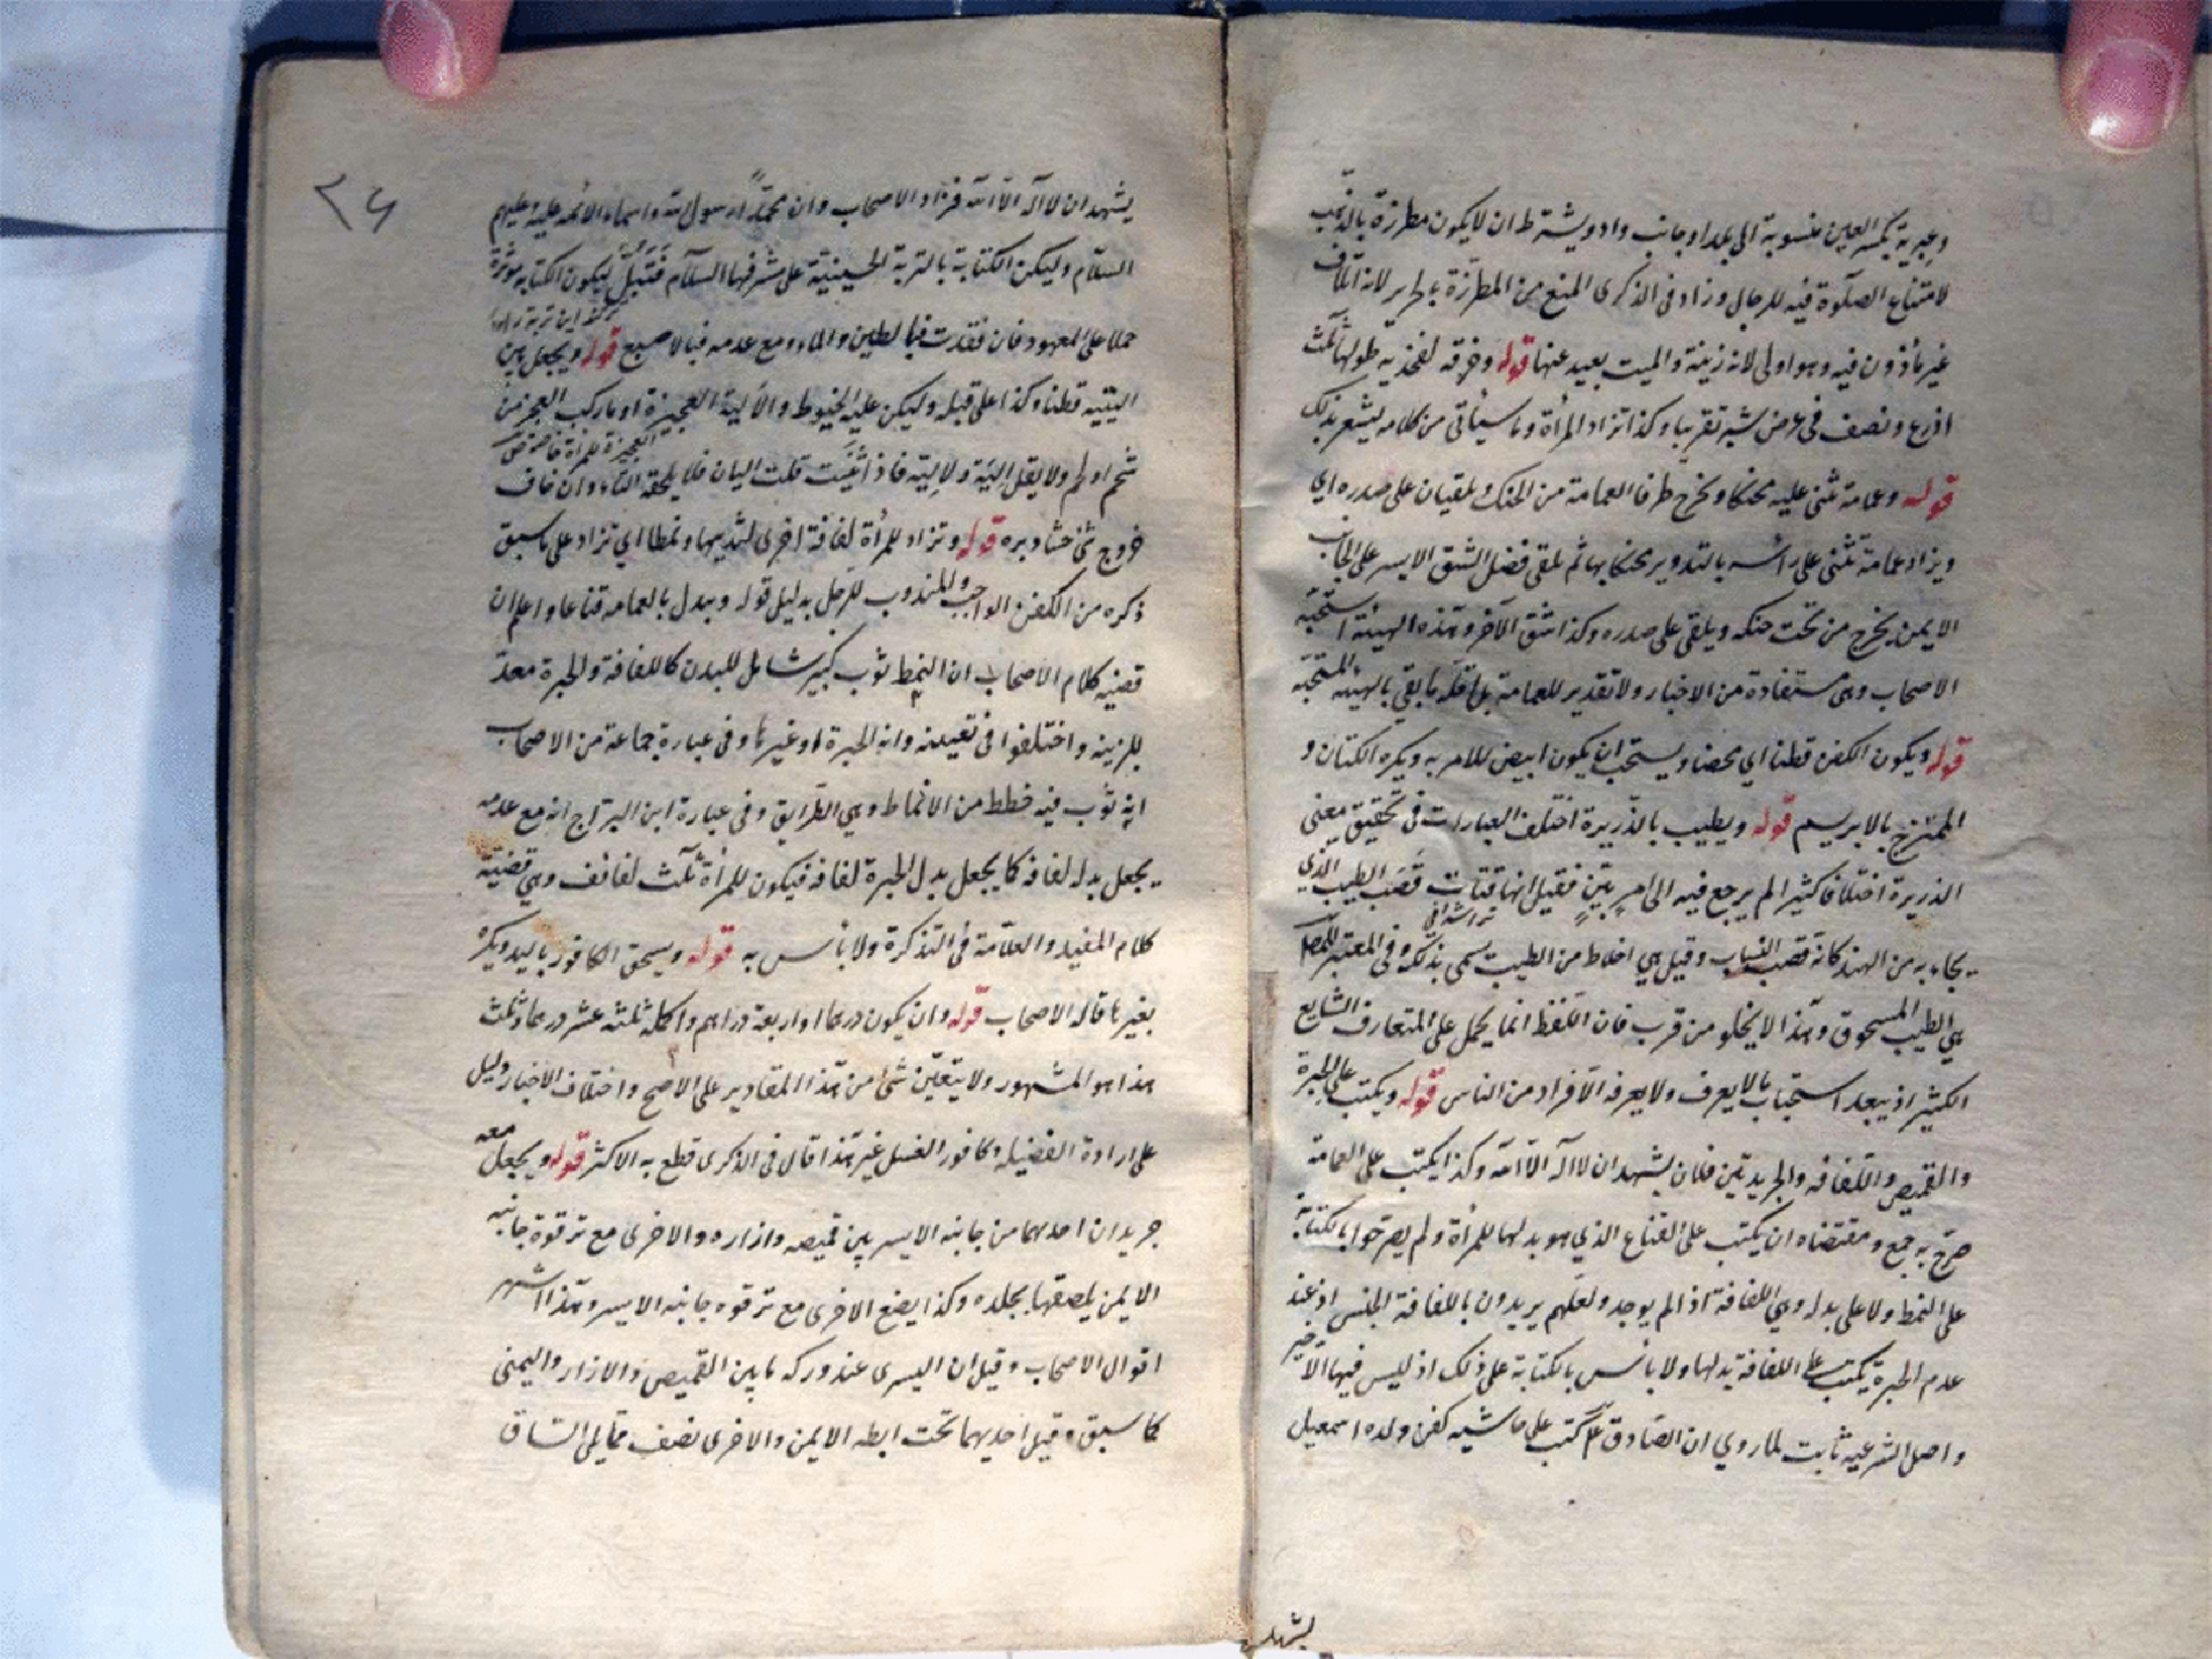 وعبرية بكسر العين منسوبة الى بلد او جانب واد ويشترط ان لا يكون مطرزة بالذهب
لامتناع الصلوة فيه للرجال وزاد فى الذكرى المنع من المطرزة بالحرير لانه اتلاف
غير مأذون فيه وهو اولى لانه زينة والميت بعيد عنها قوله وخرقه لفخذيه طولها ثلث
اذرع ونصف فى عرض شبر تقريبا وكذا تزاد المرأة وما سيأتى من كلامه يشعر بذلك
قوله وعمامة تثنى عليه محنكا ويخرج طرفا العمامة من الحنك ويلقيان على صدره اي
ويزاد عمامة تثنى على رأسه بالتدوير محنكا بها ثم يلقى فضل الشق الايسر على الجانب
الايمن يخرج من تحت حنكه ويلقى على صدره وكذا شق الآخر وهذه الهيئة استحبه
الاصحاب وهى مستفادة من الاخبار ولا تقدير للعمامة بل اقله ما يفى بالهيئة المستحبة
قوله ويكون الكفن قطنا اي محضا ويستحب ان يكون ابيض للامر به ويكره الكتان و
الممتزج بالابريسم قوله ويطيب بالذريرة اختلف العبارات فى تحقيق معنى
الذريرة اختلافا كثيرا لم يرجع فيه الى امر بيّن فقيل انها فتات قصب الطيب الذي
يجاء به من الهند كانه قصب النشاب وقيل هى اخلاط من الطيب يسمى بذلك وفى المعتبر للمصـ
هي الطيب المسحوق وهذا لا يخلو من قرب فان اللفظ انما يحمل على المتعارف الشايع
الكثير اذ يبعد استحباب ما لا يعرف ولا يعرفه الا افراد من الناس قوله ويكتب على الحبرة
والقميص واللفافه والجريدتين فلان يشهد ان لا اله الا الله وكذا يكتب على العمامة
صرح به جمع ومقتضاه ان يكتب على القناع الذي هو بدلها للمرأة ولم يصرحوا بالكتابة
على النمط ولا على بدله وهي اللفافة اذا لم يوجد ولعلهم يريدون باللفافة الجنس او عند
عدم الحبرة يكتب على اللفافة بدلها ولا بأس بالكتابة على ذلك اذ ليس فيها الا خير
واصل الشرعيه ثابت لما روي ان الصادق ع كتب على حاشيه كفن ولده اسمعيل
يشهد
٢٤
يشهد ان لا اله الا الله فزاد الاصحاب وان محمدا رسول الله واسماء الائمه عليه وعليهم
السلام وليكن الكتابة بالتربة الحسينية على مشرفها السلام فتبل ليكون الكتابه موثرة
حملا على المعهود فان فقدت فبالطين والماء ومع عدمه فبالاصبع قوله ويجعل بين
اليتيه قطنا وكذا على قبله وليكن عليه الحنوط والالية العجيزة او ما ركب العجز من
شحم او لحم ولا يقل إلية ولا لية فاذا ثنيت قلت اليان فلا يلحقه التاء وان خاف
خروج شئ حشا دبره قوله وتزاد للمرأة لفافة اخرى لثدييها ونمطا اي تزاد على ما سبق
ذكره من الكفن الواجب والمندوب للرجل بدليل قوله ويبدل بالعمامه قناعا واعلم ان
قضيه كلام الاصحاب ان النمط ثوب كبير شامل للبدن كاللفافة والحبرة معدّ
للزينه واختلفوا فى تعيينه وانه الحبرة او غيرها وفى عبارة جماعة من الاصحاب
انه ثوب فيه خطط من الانماط وهي الطرايق وفى عبارة ابن البراج انه مع عدمه
يجعل بدله لفافه كما يجعل بدل الحبرة لفافه فيكون للمرأة ثلث لفائف وهي قضية
كلام المفيد والعلامة فى التذكرة ولا بأس به قوله ويسحق الكافور باليد ويكره
بغيرها قاله الاصحاب قوله وان يكون درهما او اربعة دراهم واكمله ثلثه عشر درهما وثلث
هذا هو المشهور ولا يتعين شئ من هذا المقادير على الاصح واختلاف الاخبار دليل
على ارادة الفضيله وكافور الغسل غير هذا قال فى الذكرى قطع به الاكثر قوله ويجعل معه
جريدان احدهما من جانبه الايسر بين قميصه وازاره والاخرى مع ترقوة جانبه
الايمن يلصقها بجلده وكذا يضع الاخرى مع ترقوه جانبه الايسر وهذا اشهر
اقوال الاصحاب وقيل ان اليسرى عند وركه ما بين القميص والازار واليمنى
كما سبق وقيل احديهما تحت ابطه الايمن والاخرى نصف مما يلى الساق